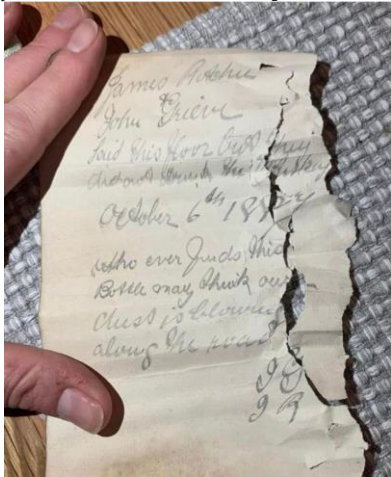 James Ritchie
&
John Grieve
Laid this floor but they
did not drink the whisky
October 6th 1887
who ever finds this
Bottle may think our
dust is blowing
along the road
J G
J R